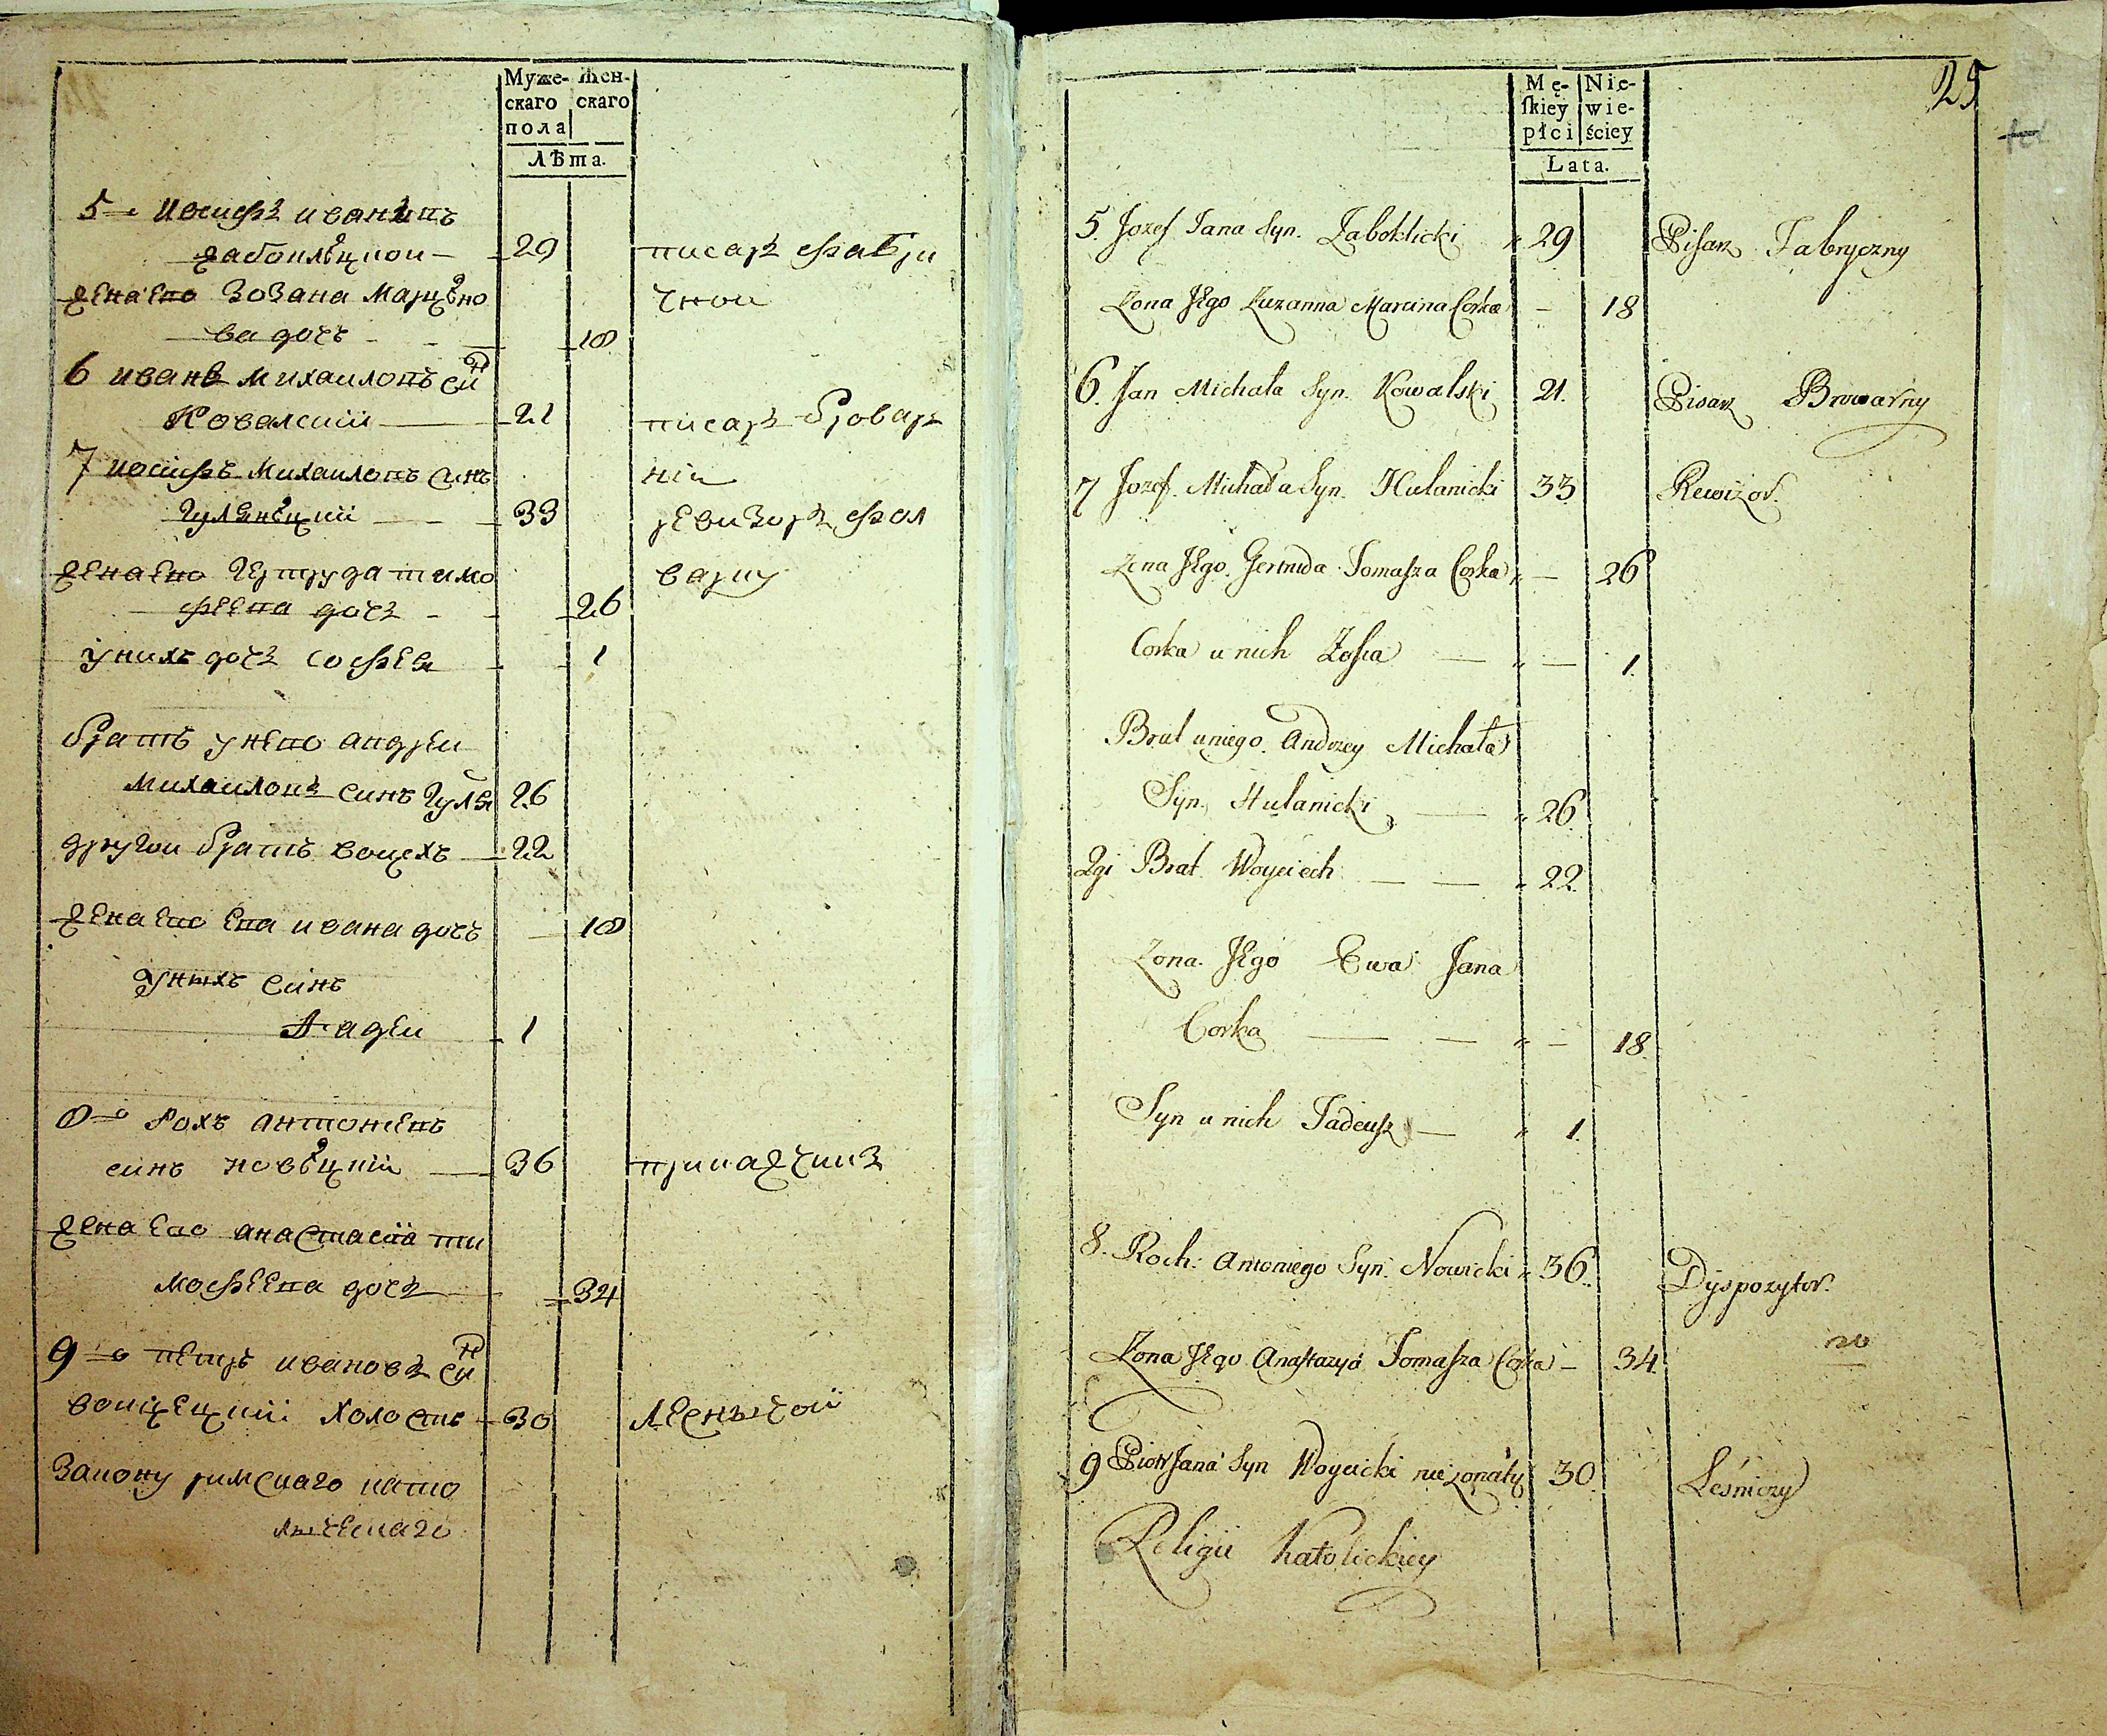 Муже- Жен-
скаго скаго
пола
Лѣта.
5 Иосифъ иванъ
жабоклѣцкои 29 писаръ фабри
жена его Зозана Марцѣно чнои
ва дочъ 18
6 иванъ михаиловъ син
Ковалскій 21 писаръ бровар
7 иосіфъ михаиловъ синъ ній
Гулянѣцкій 33 ревизоръ фол
жена его Гертруда тимо варку
феева дочъ 26
у нихъ дочъ софея 1
братъ у него андреи
михаиловъ синъ Гуля 26
другои братъ воцехъ 22
жена его ева ивана дочъ 18
у ныхъ синъ
Фадеи 1
8 Рохъ антонневъ
синъ новѣцкій 36 прикажчикъ
жена его анастасія ти
мофеева дочъ 34
9 петръ ивановъ син
воицецкій холостъ 30 лесньчой
Закону римскаго като
лыческаго
25
Mę- Nie-
skiey wie-
płci ściey
Lata.
5. Jozef Jana Syn. Zaboklicki 29 Pisarz Fabryczny
Zona Jego Zuzanna Marcina Corka — 18
6. Jan Michała Syn. Kowalski 21. Pisarz Browarny
7 Jozef Michała Syn. Hulanicki 33 Rewizor.
Zona Jego. Gertruda Tomasza Corka — 26
Corka u nich Zosia — — 1.
Brat u niego. Andrzey Michała
Syn. Hulanicki — 26
2gi Brat Woyciech — — 22.
Zona Jego Ewa Jana
Corka — — — 18.
Syn u nich Tadeusz — 1.
8. Roch: Antoniego Syn. Nowicki 36. Dyspozytor.
Zona Jego Anastazya Tomasza Corka — 34.
9 Piotr Jana Syn Woycicki nie zonaty 30. Leśniczy
Religii Katolickiey